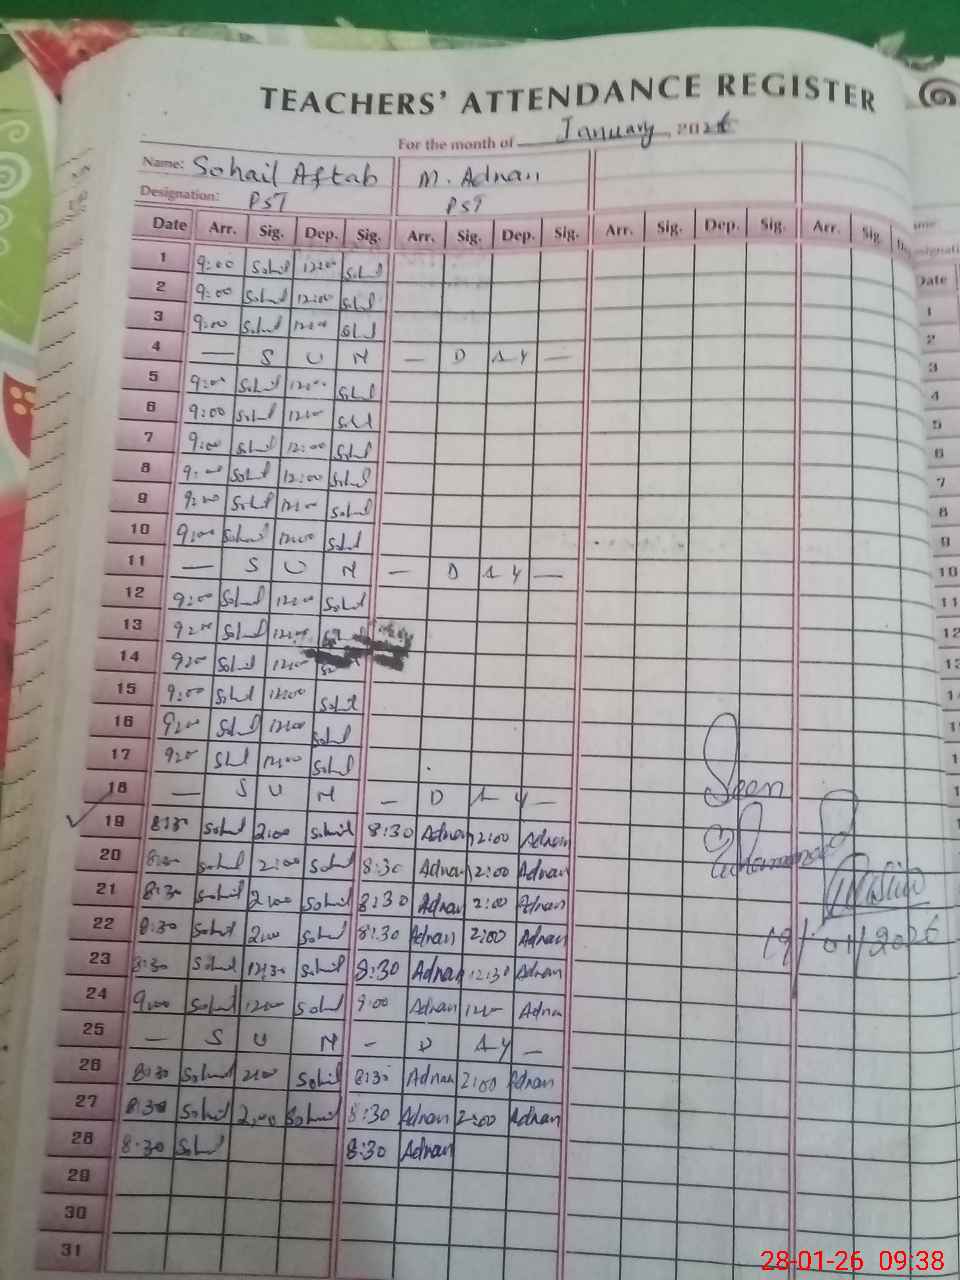 TEACHERS' ATTENDANCE REGISTER
For the month of January, 2026
Name: Sohail Aftab M. Adnan
Designation: PST PST
Date Arr. Sig. Dep. Sig. Arr. Sig. Dep. Sig. Arr. Sig. Dep. Sig. Arr. Sig.
1 9:00 Sohil 12:00 Sohil
2 9:00 Sohil 12:00 Sohil
3 9:00 Sohil 12:00 Sohil
4 — S U N — D A Y —
5 9:00 Sohil 12:00 Sohil
6 9:00 Sohil 12:00 Sohil
7 9:00 Sohil 12:00 Sohil
8 9:00 Sohil 12:00 Sohil
9 9:00 Sohil 12:00 Sohil
10 9:00 Sohil 12:00 Sohil
11 — S U N — D A Y —
12 9:00 Sohil 12:00 Sohil
13 9:00 Sohil 12:00
14 9:00 Sohil 12:00
15 9:00 Sohil 12:00 Sohil
16 9:00 Sohil 12:00 Sohil
17 9:00 Sohil 12:00 Sohil
18 — S U N — D A Y —
19 8:30 Sohil 2:00 Sohil 8:30 Adnan 2:00 Adnan
20 8:00 Sohil 2:00 Sohil 8:30 Adnan 2:00 Adnan
21 8:30 Sohil 2:00 Sohil 8:30 Adnan 2:00 Adnan
22 8:30 Sohil 2:00 Sohil 8:30 Adnan 2:00 Adnan
23 8:30 Sohil 12:30 Sohil 8:30 Adnan 12:30 Adnan
24 9:00 Sohil 12:00 Sohil 9:00 Adnan 12:00 Adnan
25 — S U N — D A Y —
26 8:30 Sohil 2:00 Sohil 8:30 Adnan 2:00 Adnan
27 8:30 Sohil 2:00 Sohil 8:30 Adnan 2:00 Adnan
28 8:30 Sohil 8:30 Adnan
29
30
31
Seen
19/01/2026
28-01-26 09:38